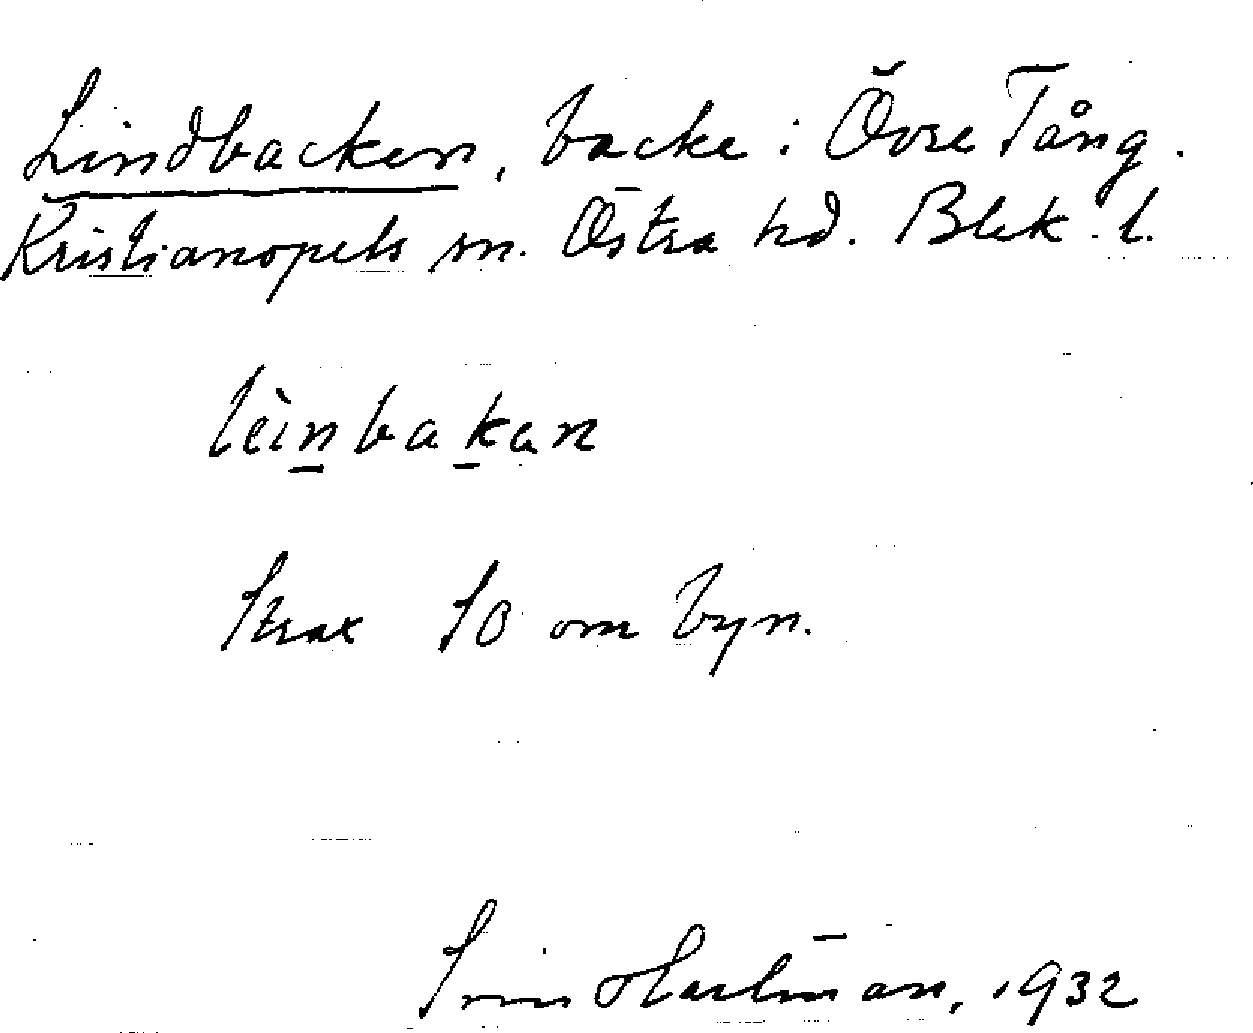 Lindbacken, backe i Övre Tång.
Kristianopels sn. Östra hd. Blek. l.
lèinbakan
Strax SO om byn.
Sven Hartman, 1932